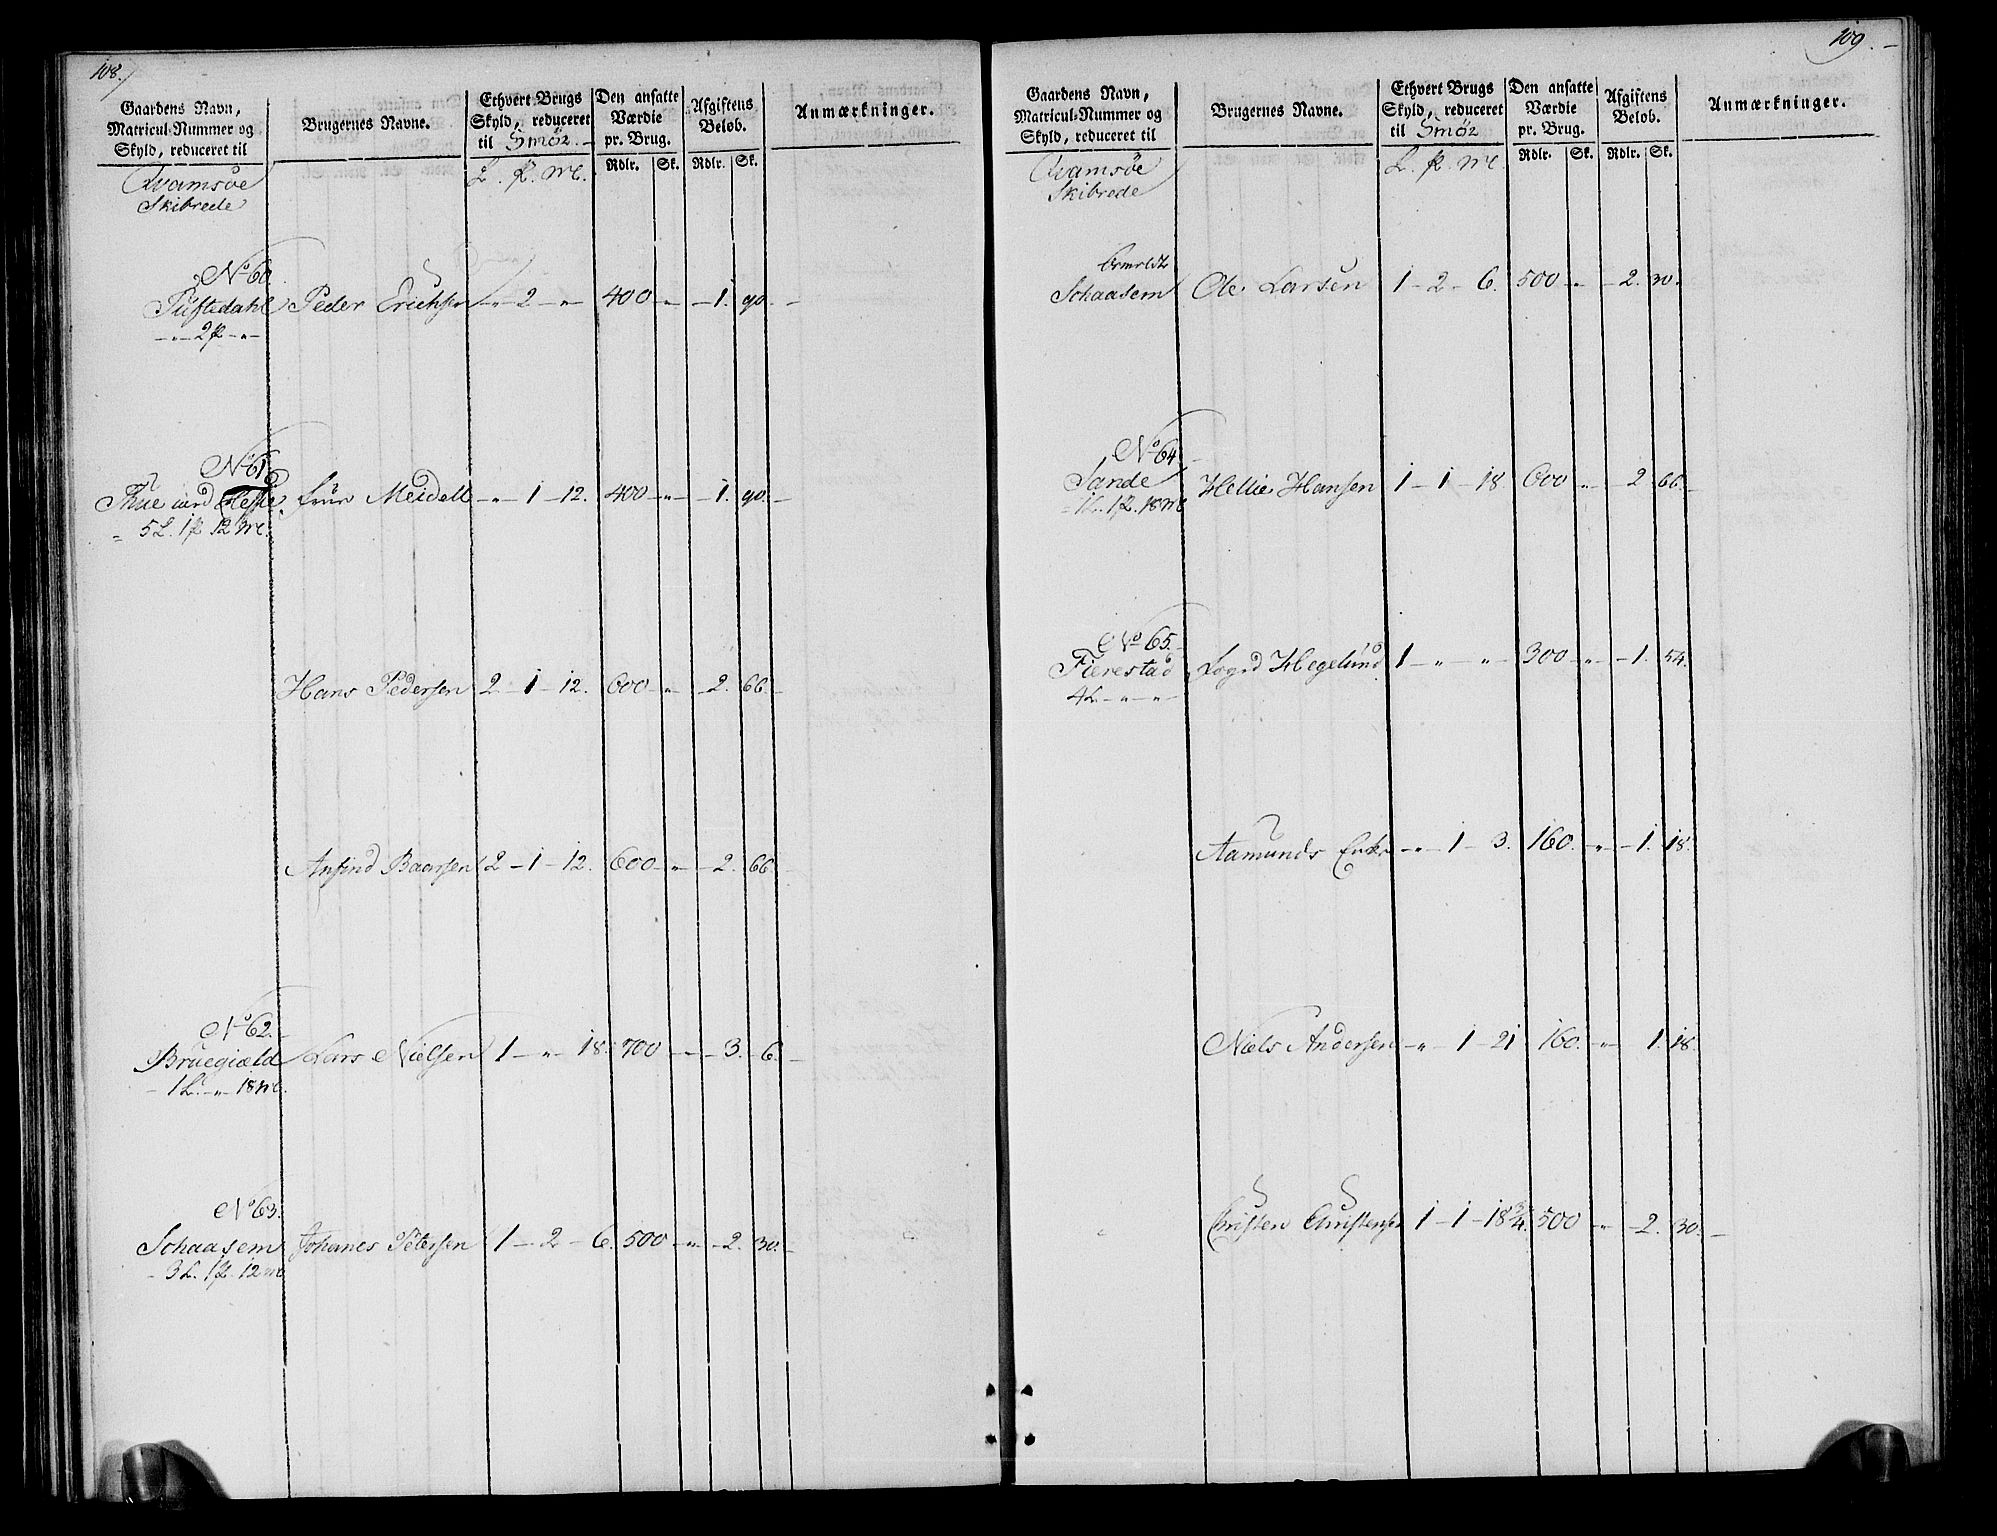 108.
Gaardens Navn, Matricul-Nummer og Skyld, reduceret til
Brugernes Navne.
Ethvert Brugs Skyld, reduceret til Smör.
Den ansatte Værdie pr. Brug.
Afgiftens Beløb.
Anmærkninger.
Rdlr. Sk. Rdlr. Sk.
Qvamsöe L. p. mc.
Skibrede
No 60.
Tuftedahl Peder Erichsen - " - 2 - " - 400 - " - 1. 90. -
- " - 2 p - " -
No 61.
Thue und Hesle. Frue Meidell - " - 1 - 12. 400 - " - 1. 90. -
5 L. 1 p 12 mc.
Hans Pedersen 2 - 1 - 12. 600 - " - 2. 66. -
Anfind Baarsen 2 - 1 - 12. 600 - " - 2. 66.
No 62.
Bruegiæld Lars Nielsen 1 - " - 18. 700 - " - 3. 6. -
- 1 L. - " - 18 mc.
No 63.
Schaasem Johanes Petersen 1 - 2 - 6. 500 - " - 2. 30. -
- 3 L. 1 p. 12 mc
109.
Gaardens Navn, Matricul-Nummer og Skyld, reduceret til
Brugernes Navne.
Ethvert Brugs Skyld, reduceret til Smör
Den ansatte Værdie pr. Brug.
Afgiftens Beløb.
Anmærkninger.
Rdlr. Sk. Rdlr. Sk.
Qvamsöe L. p. mc.
Skibrede
Schaasem Ole Larsen 1 - 2 - 6. 500 - " - 2. 30.
No 64.
Sande Hellie Hansen 1 - 1 - 18 600 - " - 2 66. -
- 1 L. 1 p. 18 mc
No 65.
Fierestad Fogd Hegelund 1 - " - " - 300 - " - 1. 54.
4 L - " - " -
Aamunds Enke - " - 1 - 3. 160. - " - 1. 18.
Niels Andersen - " - 1 - 21 160. - " - 1. 18.
Christen Christensen 1 - 1 - 18 3/4 500 - " - 2. 30. -